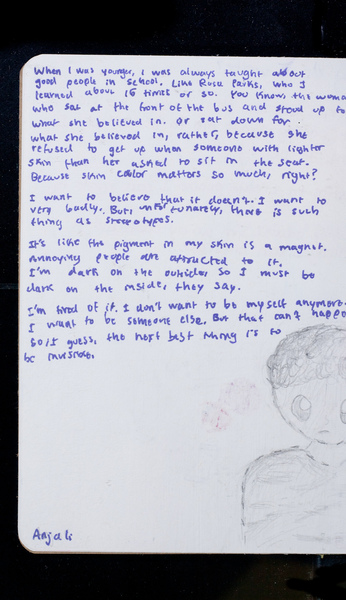 When I was younger, I was always taught about
good people in school. Like Rosa Parks, who I
learned about 16 times or so. You know, the woman
who sat at the front of the bus and stood up to
what she believed in. Or sat down for
what she believed in, rather, because she
refused to get up when someone with lighter
skin than her asked to sit in the seat.
Because skin color matters so much, right?
I want to believe that it doesn't. I want to
very badly. But unfortunately, there is such
thing as stereotypes.
It's like the pigment in my skin is a magnet.
Annoying people are attracted to it.
I'm dark on the outside, so I must be
dark on the inside, they say.
I'm tired of it. I don't want to be myself anymore.
I want to be someone else. But that can't happen
So, I guess, the next best thing is to
be invisible.
Anjali